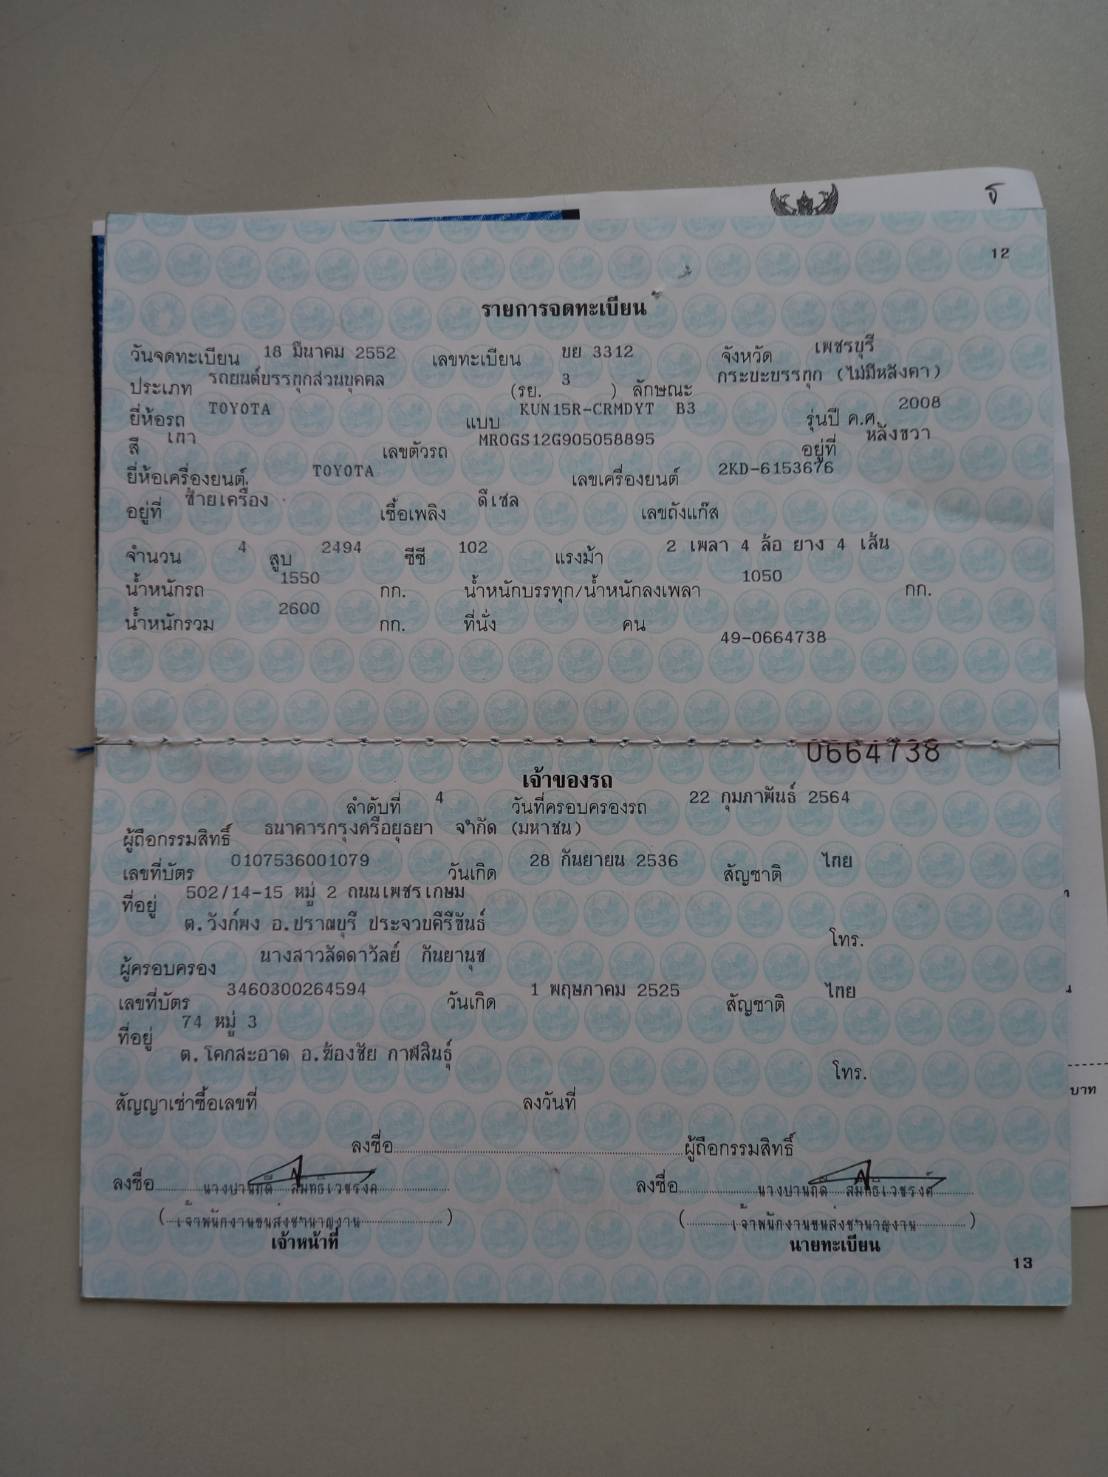 12
รายการจดทะเบียน
วันจดทะเบียน 18 มีนาคม 2552 เลขทะเบียน ขย 3312 จังหวัด เพชรบุรี
ประเภท รถยนต์บรรทุกส่วนบุคคล (รย. 3 ) ลักษณะ กระบะบรรทุก (ไม่มีหลังคา)
ยี่ห้อรถ TOYOTA แบบ KUN15R-CRMDYT B3 รุ่นปี ค.ศ. 2008
สี เทา เลขตัวรถ MR0GS12G905058895 อยู่ที่ หลังขวา
ยี่ห้อเครื่องยนต์ TOYOTA เลขเครื่องยนต์ 2KD-6153676
อยู่ที่ ซ้ายเครื่อง เชื้อเพลิง ดีเซล เลขถังแก๊ส
จำนวน 4 สูบ 2494 ซีซี 102 แรงม้า 2 เพลา 4 ล้อ ยาง 4 เส้น
น้ำหนักรถ 1550 กก. น้ำหนักบรรทุก/น้ำหนักลงเพลา 1050 กก.
น้ำหนักรวม 2600 กก. ที่นั่ง คน
49-0664738
0664738
เจ้าของรถ
ลำดับที่ 4 วันที่ครอบครองรถ 22 กุมภาพันธ์ 2564
ผู้ถือกรรมสิทธิ์ ธนาคารกรุงศรีอยุธยา จำกัด (มหาชน)
เลขที่บัตร 0107536001079 วันเกิด 28 กันยายน 2536 สัญชาติ ไทย
ที่อยู่ 502/14-15 หมู่ 2 ถนนเพชรเกษม
ต.วังก์พง อ.ปราณบุรี ประจวบคีรีขันธ์ โทร.
ผู้ครอบครอง นางสาวลัดดาวัลย์ กันยานุช
เลขที่บัตร 3460300264594 วันเกิด 1 พฤษภาคม 2525 สัญชาติ ไทย
ที่อยู่ 74 หมู่ 3
ต.โคกสะอาด อ.ฆ้องชัย กาฬสินธุ์ โทร.
สัญญาเช่าซื้อเลขที่ ลงวันที่
ลงชื่อ ผู้ถือกรรมสิทธิ์
ลงชื่อ ลงชื่อ
(เจ้าพนักงานขนส่งชำนาญงาน) (เจ้าพนักงานขนส่งชำนาญงาน)
เจ้าหน้าที่ นายทะเบียน
13
บาท